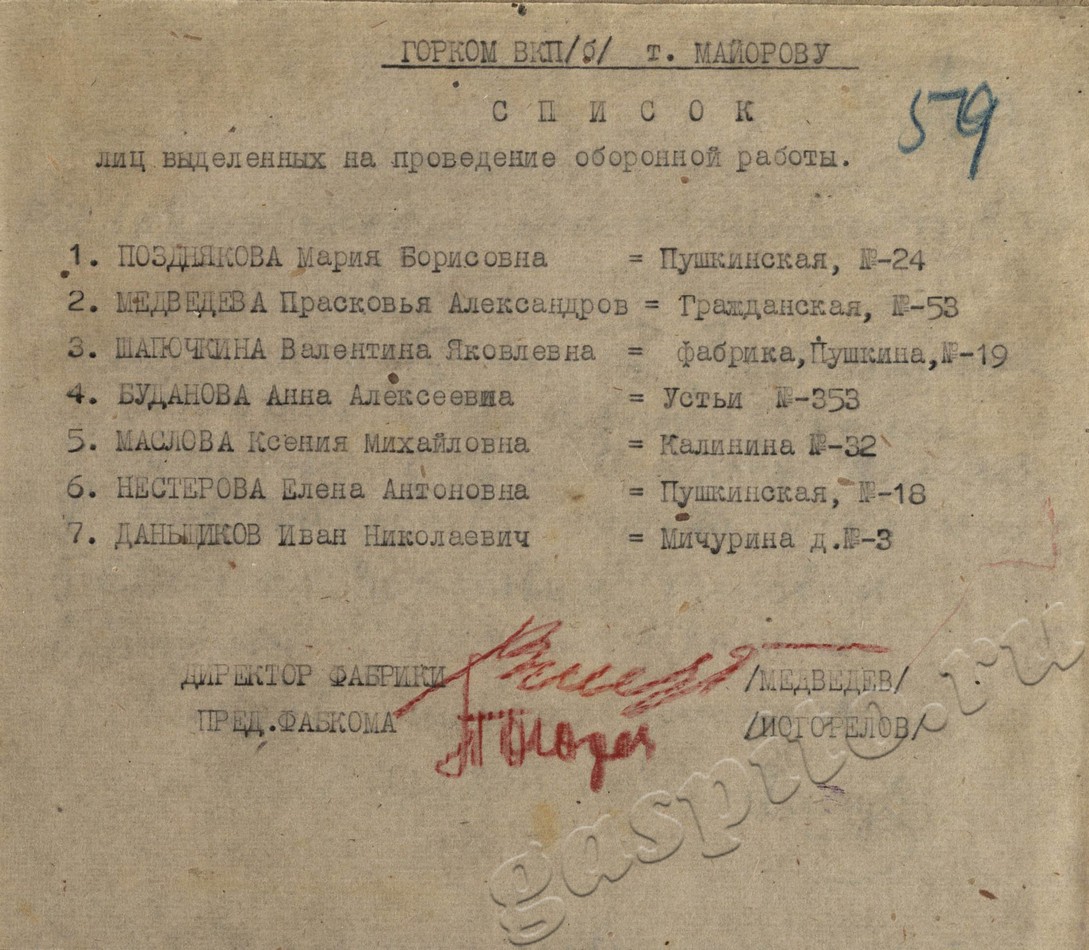 ГОРКОМ ВКП/б/ т. МАЙОРОВУ
С П И С О К
59
лиц выделенных на проведение оборонной работы.
1. ПОЗДНЯКОВА Мария Борисовна = Пушкинская, №-24
2. МЕДВЕДЕВА Прасковья Александров = Гражданская, №-53
3. ШАПЮЧКИНА Валентина Яковлевна = фабрика,Пушкина,№-19
4. БУДАНОВА Анна Алексеевна = Устьи №-353
5. МАСЛОВА Ксения Михайловна = Калинина №-32
6. НЕСТЕРОВА Елена Антоновна = Пушкинская, №-18
7. ДАНЬЩИКОВ Иван Николаевич = Мичурина д.№-3
ДИРЕКТОР ФАБРИКИ /МЕДВЕДЕВ/
ПРЕД.ФАБКОМА /ИСГОРЕЛОВ/
gaspito.ru